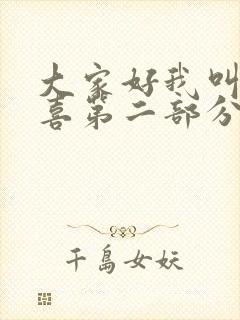 大家好我叫
喜第二部分
千岛女妖